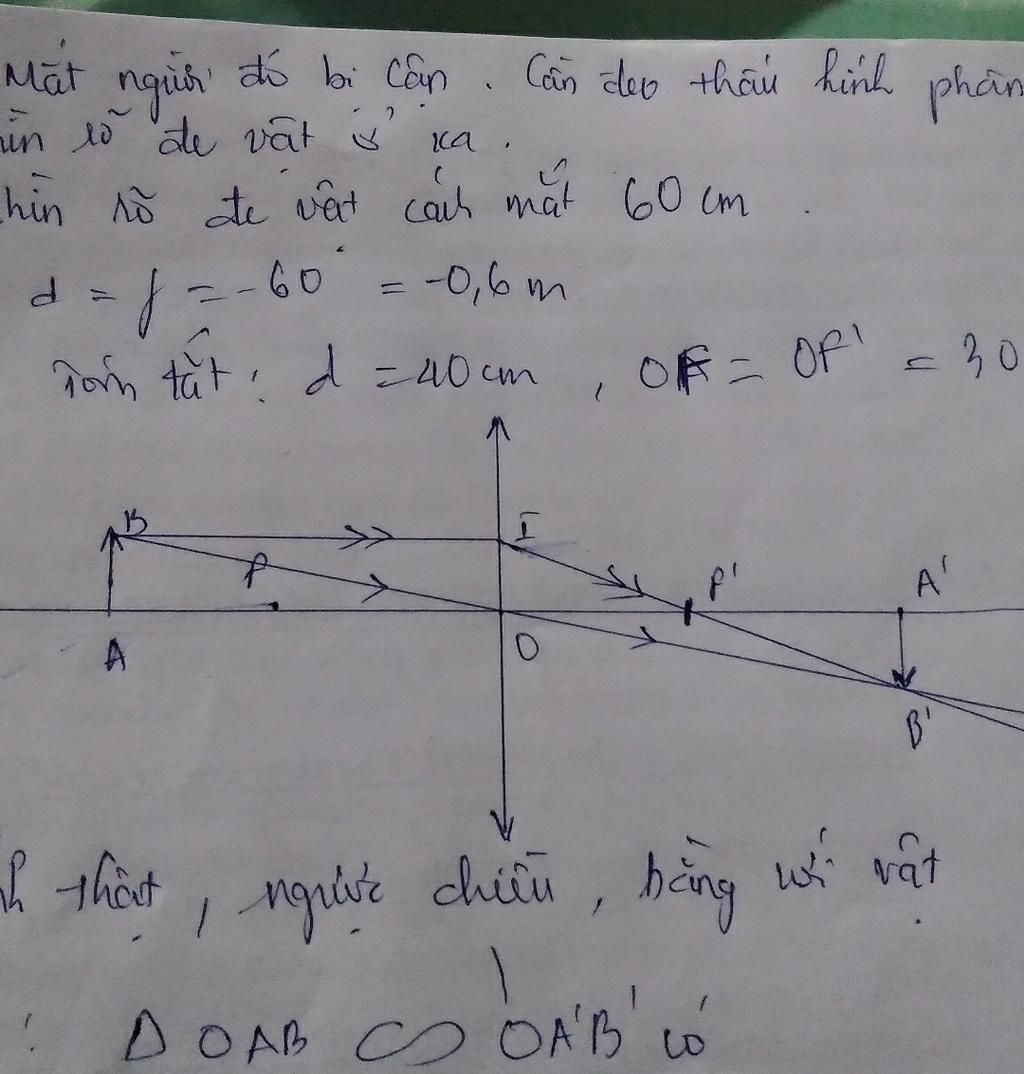 Mắt người đó bị cận. Cần đeo thấu kính phân
ìn rõ đc vật ở xa.
hìn rõ đc vật cách mắt 60 cm.
d = f = -60 = -0,6 m
Tóm tắt: d = 40 cm, OF = OF' = 30
B
I
F
F'
A'
A
O
B'
h thật, ngược chiều, bằng với vật
: Δ OAB ∽ OA'B' có